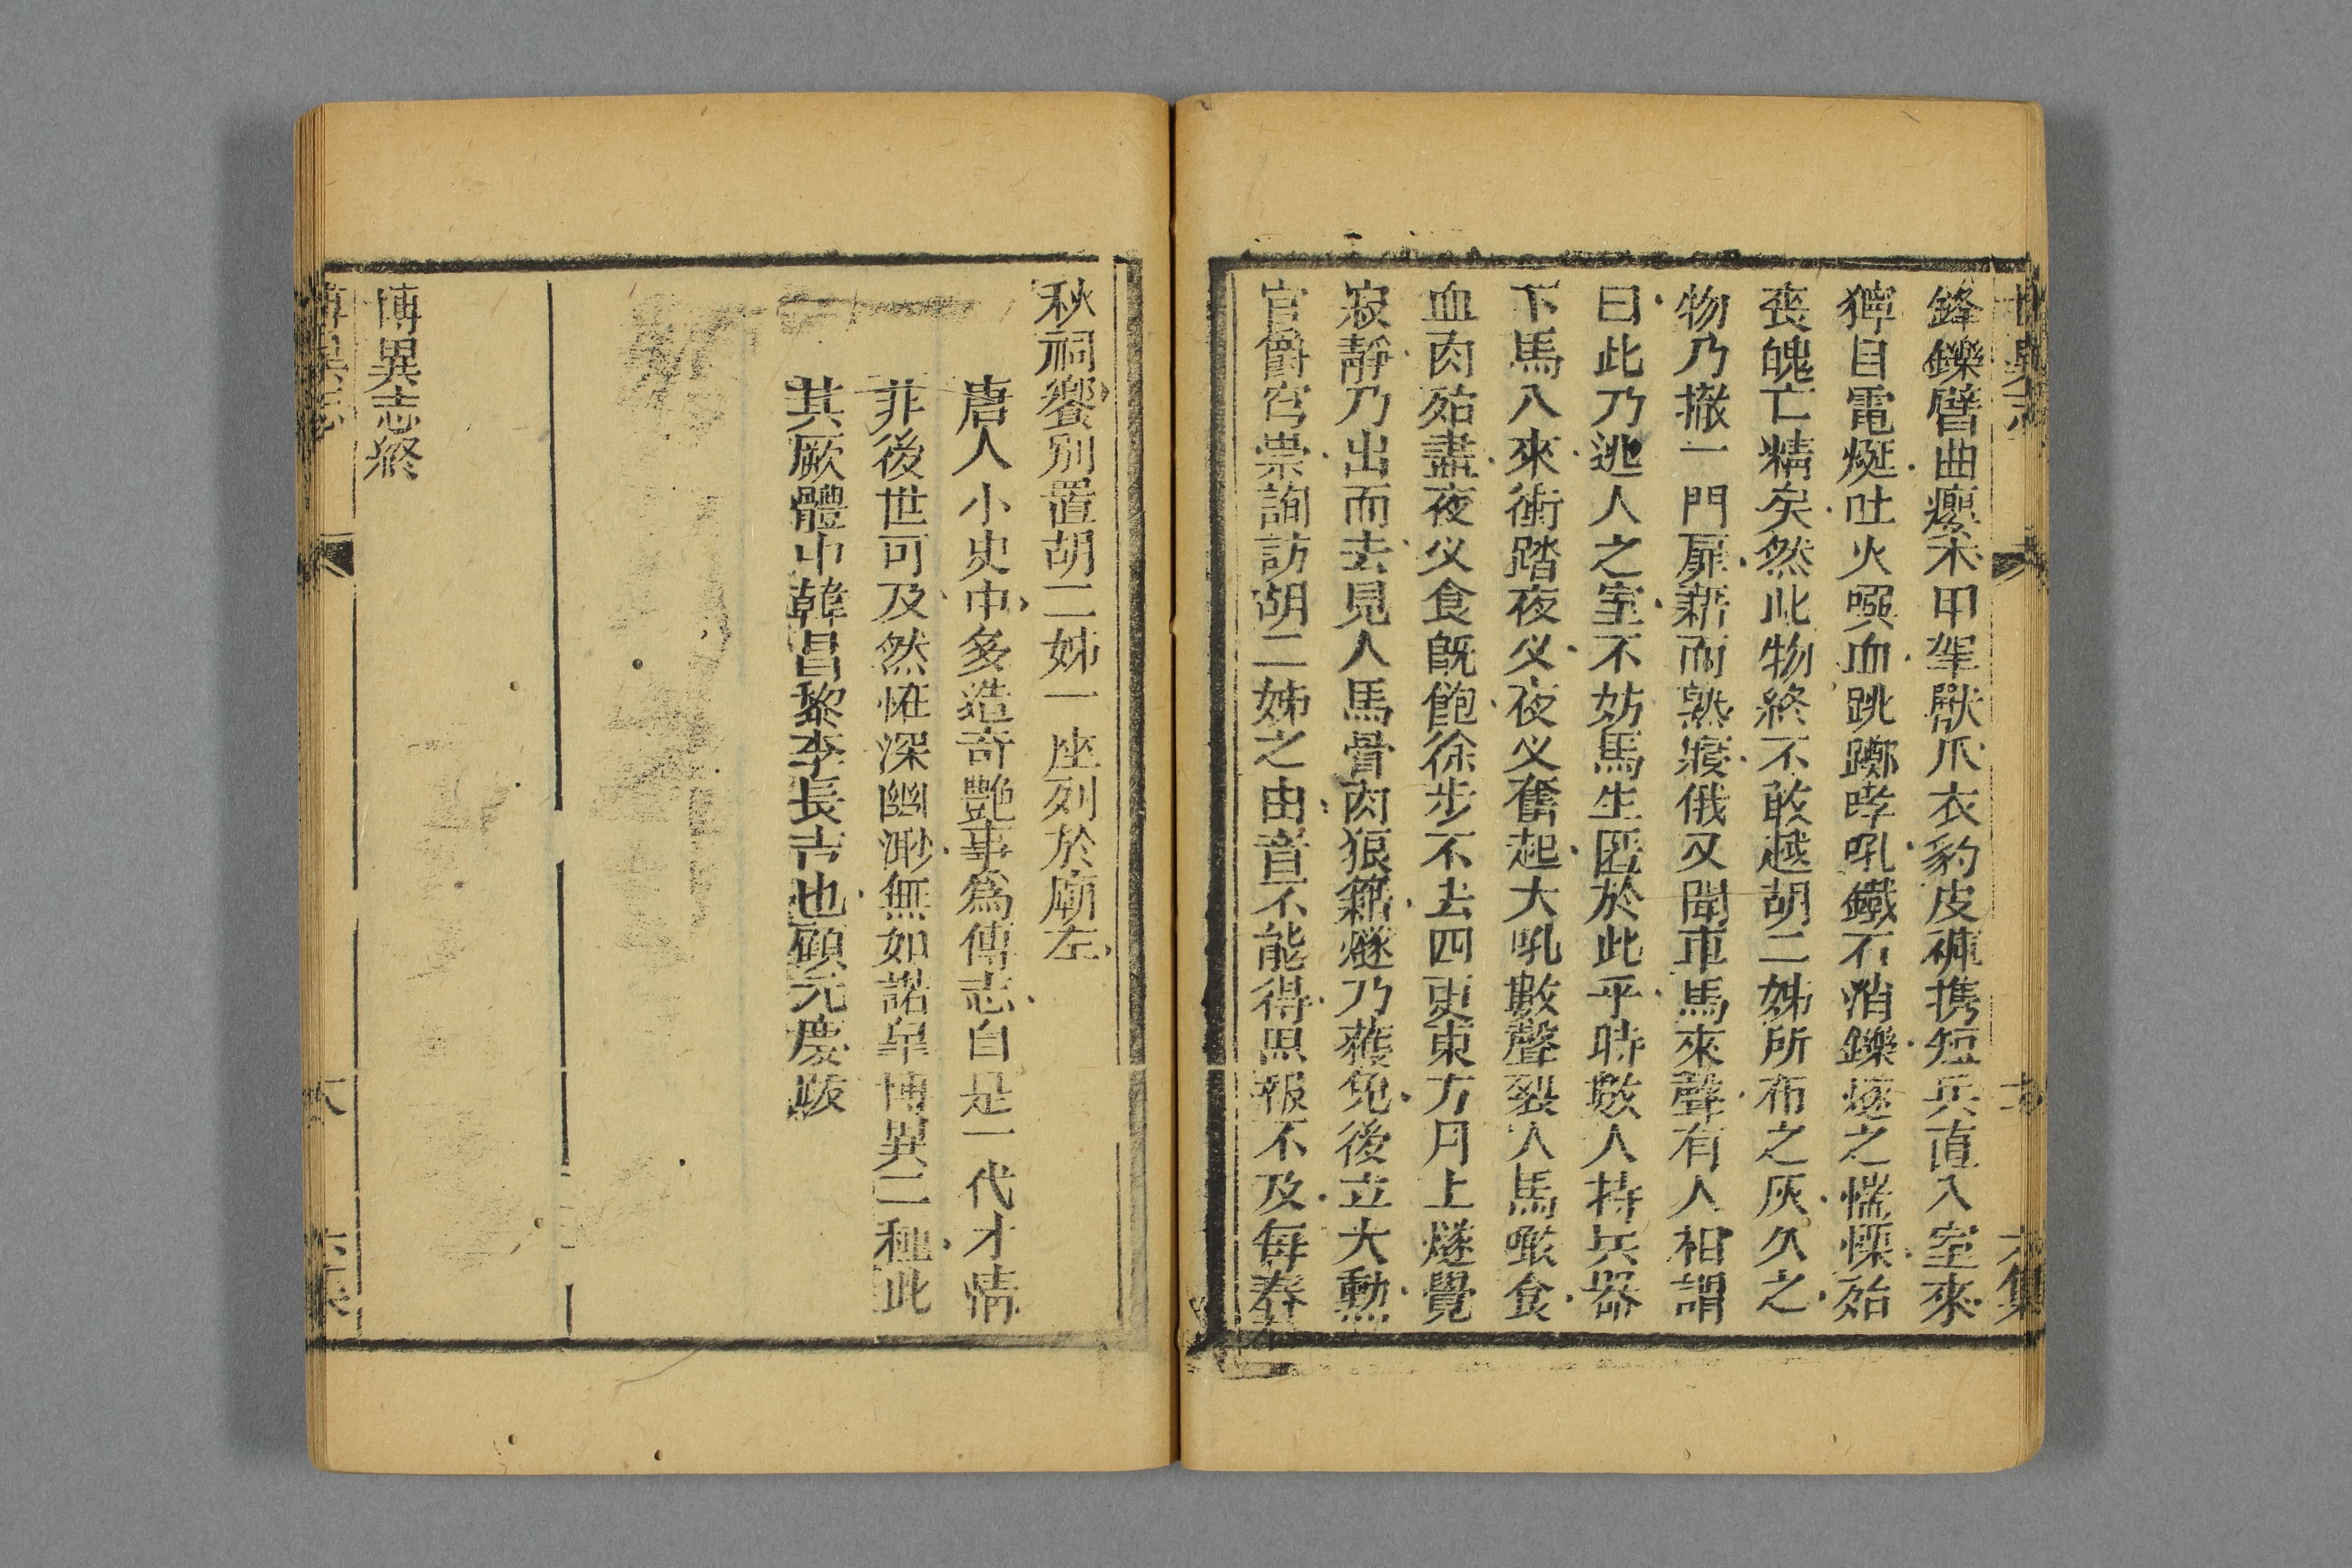 鋒鑠臂曲癭木甲駕獸爪衣豹皮褲携短兵直入室來
獰目電㷼吐火噀血跳躑哮吼鐵石消鑠燧之惴慄殆
喪魄亡精矣然此物終不敢越胡二姊所布之灰久之
物乃撤一門扉藉而熟寢俄又聞車馬來聲有人相謂
曰此乃逃人之室不妨馬生匿於此乎時數人持兵器
下馬入來衝踏夜义夜义奮起大吼數聲裂人馬噉食
血肉殆盡夜义食旣飽徐步不去四更東方月上燧覺
寂靜乃出而去見人馬骨肉狼藉燧乃獲免後立大勳
官爵穹崇詢訪胡二姊之由竟不能得思報不及每春
秋祠饗別置胡二姊一座列於廟左
唐人小史中多造奇艷事爲傳志自是一代才情
非後世可及然怪深幽渺無如諾皋博異二種此
其厥體中韓昌黎李長吉也顧元慶跋
博異志終